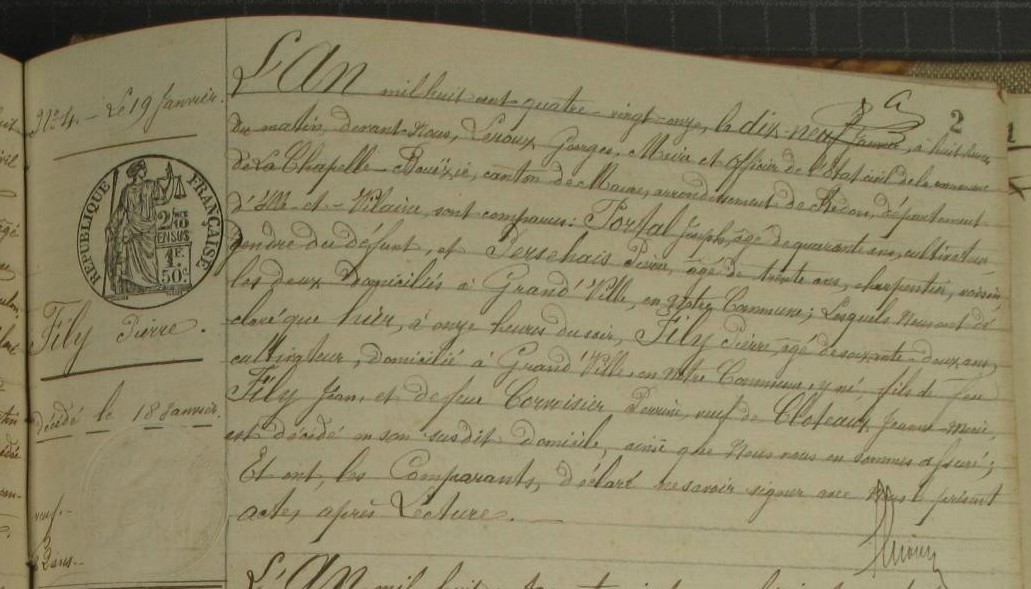 2
N° 4. - Le 19 Janvier.
RÉPUBLIQUE FRANÇAISE
2/10
EN SUS
1F.
50c
Fily Pierre.
décédé le 18 Janvier.
veuf.
L'An mil huit cent quatre-vingt-onze, le dix-neuf Janvier, à huit heures
du matin, devant Nous, Leroux Georges, Maire et officier de l'Etat civil de la commune
de La Chapelle-Bouëxic, canton de Maure, arrondissement de Redon, département
d'Ille-et-Vilaine, sont comparus: Portal Joseph, âgé de quarante ans, cultivateur,
gendre du défunt, et Persehais Pierre, âgé de trente ans, charpentier, voisin
les deux domiciliés à Grand'Ville, en Commune; Lesquels Nous ont dé-
claré que hier, à onze heures du soir, Fily Pierre, âgé de soixante-deux ans,
cultivateur, domicilié à Grand'Ville, en Notre Commune, y né, fils de feu
Fily Jean, et de feue Corvoisier Perrine, veuf de Cloteaux Jeanne Marie,
est décédé en son susdit domicile, ainsi que Nous nous en sommes assuré;
Et ont, les Comparants, déclaré ne savoir signer avec Nous le présent
acte, après Lecture. -
L'An mil huit